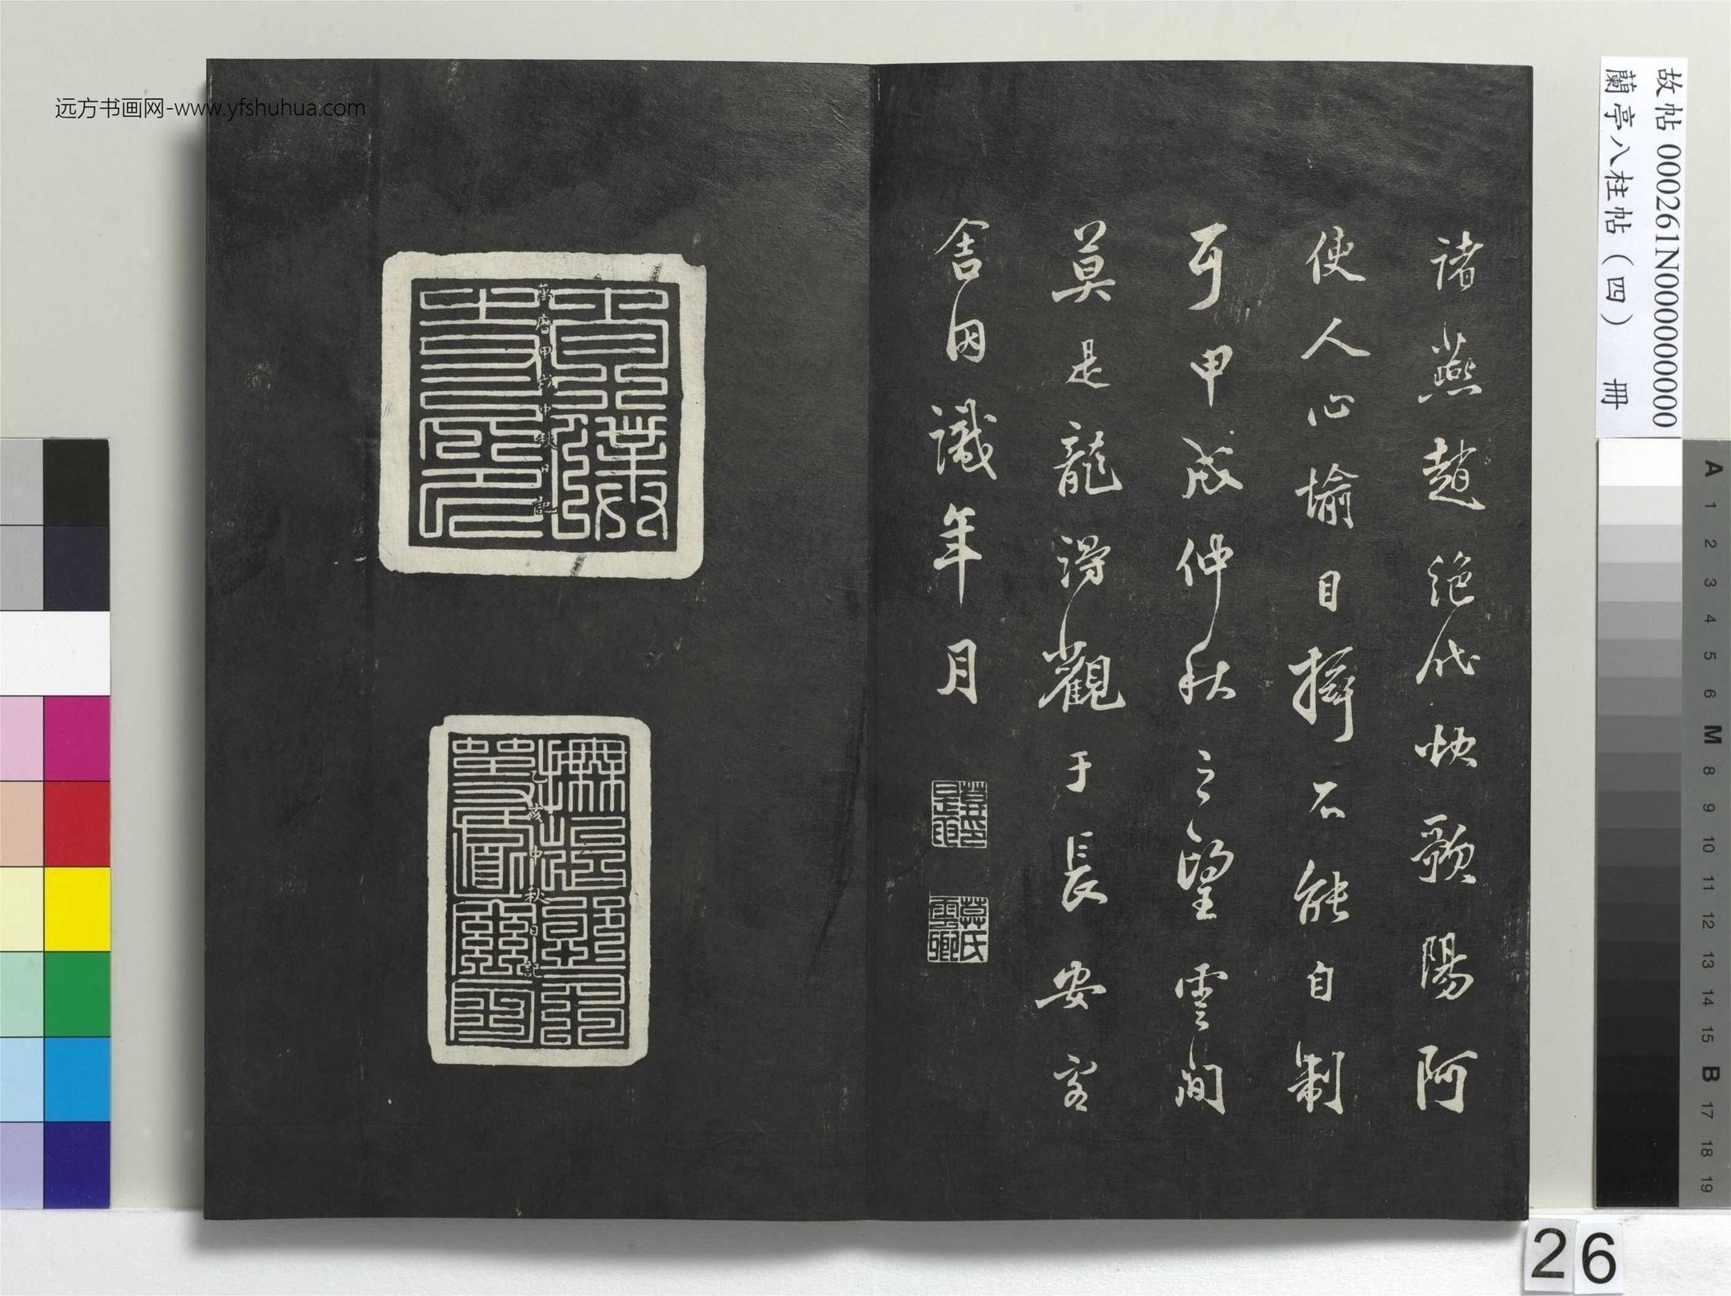 远方书画网-www.yfshuhua.com
故帖 000261N000000000
蘭亭八柱帖（四） 冊
諸燕趙絕代快歌陽阿
使人心愉目擕不能自制
可甲戌仲秋之望雲間
莫是龍得觀于長安客
舍因識年月
莫氏雲卿
萬曆甲戌中秋日記
乙亥中秋日記
A
1
2
3
4
5
6
M
8
9
10
11
12
13
14
15
B
17
18
19
26